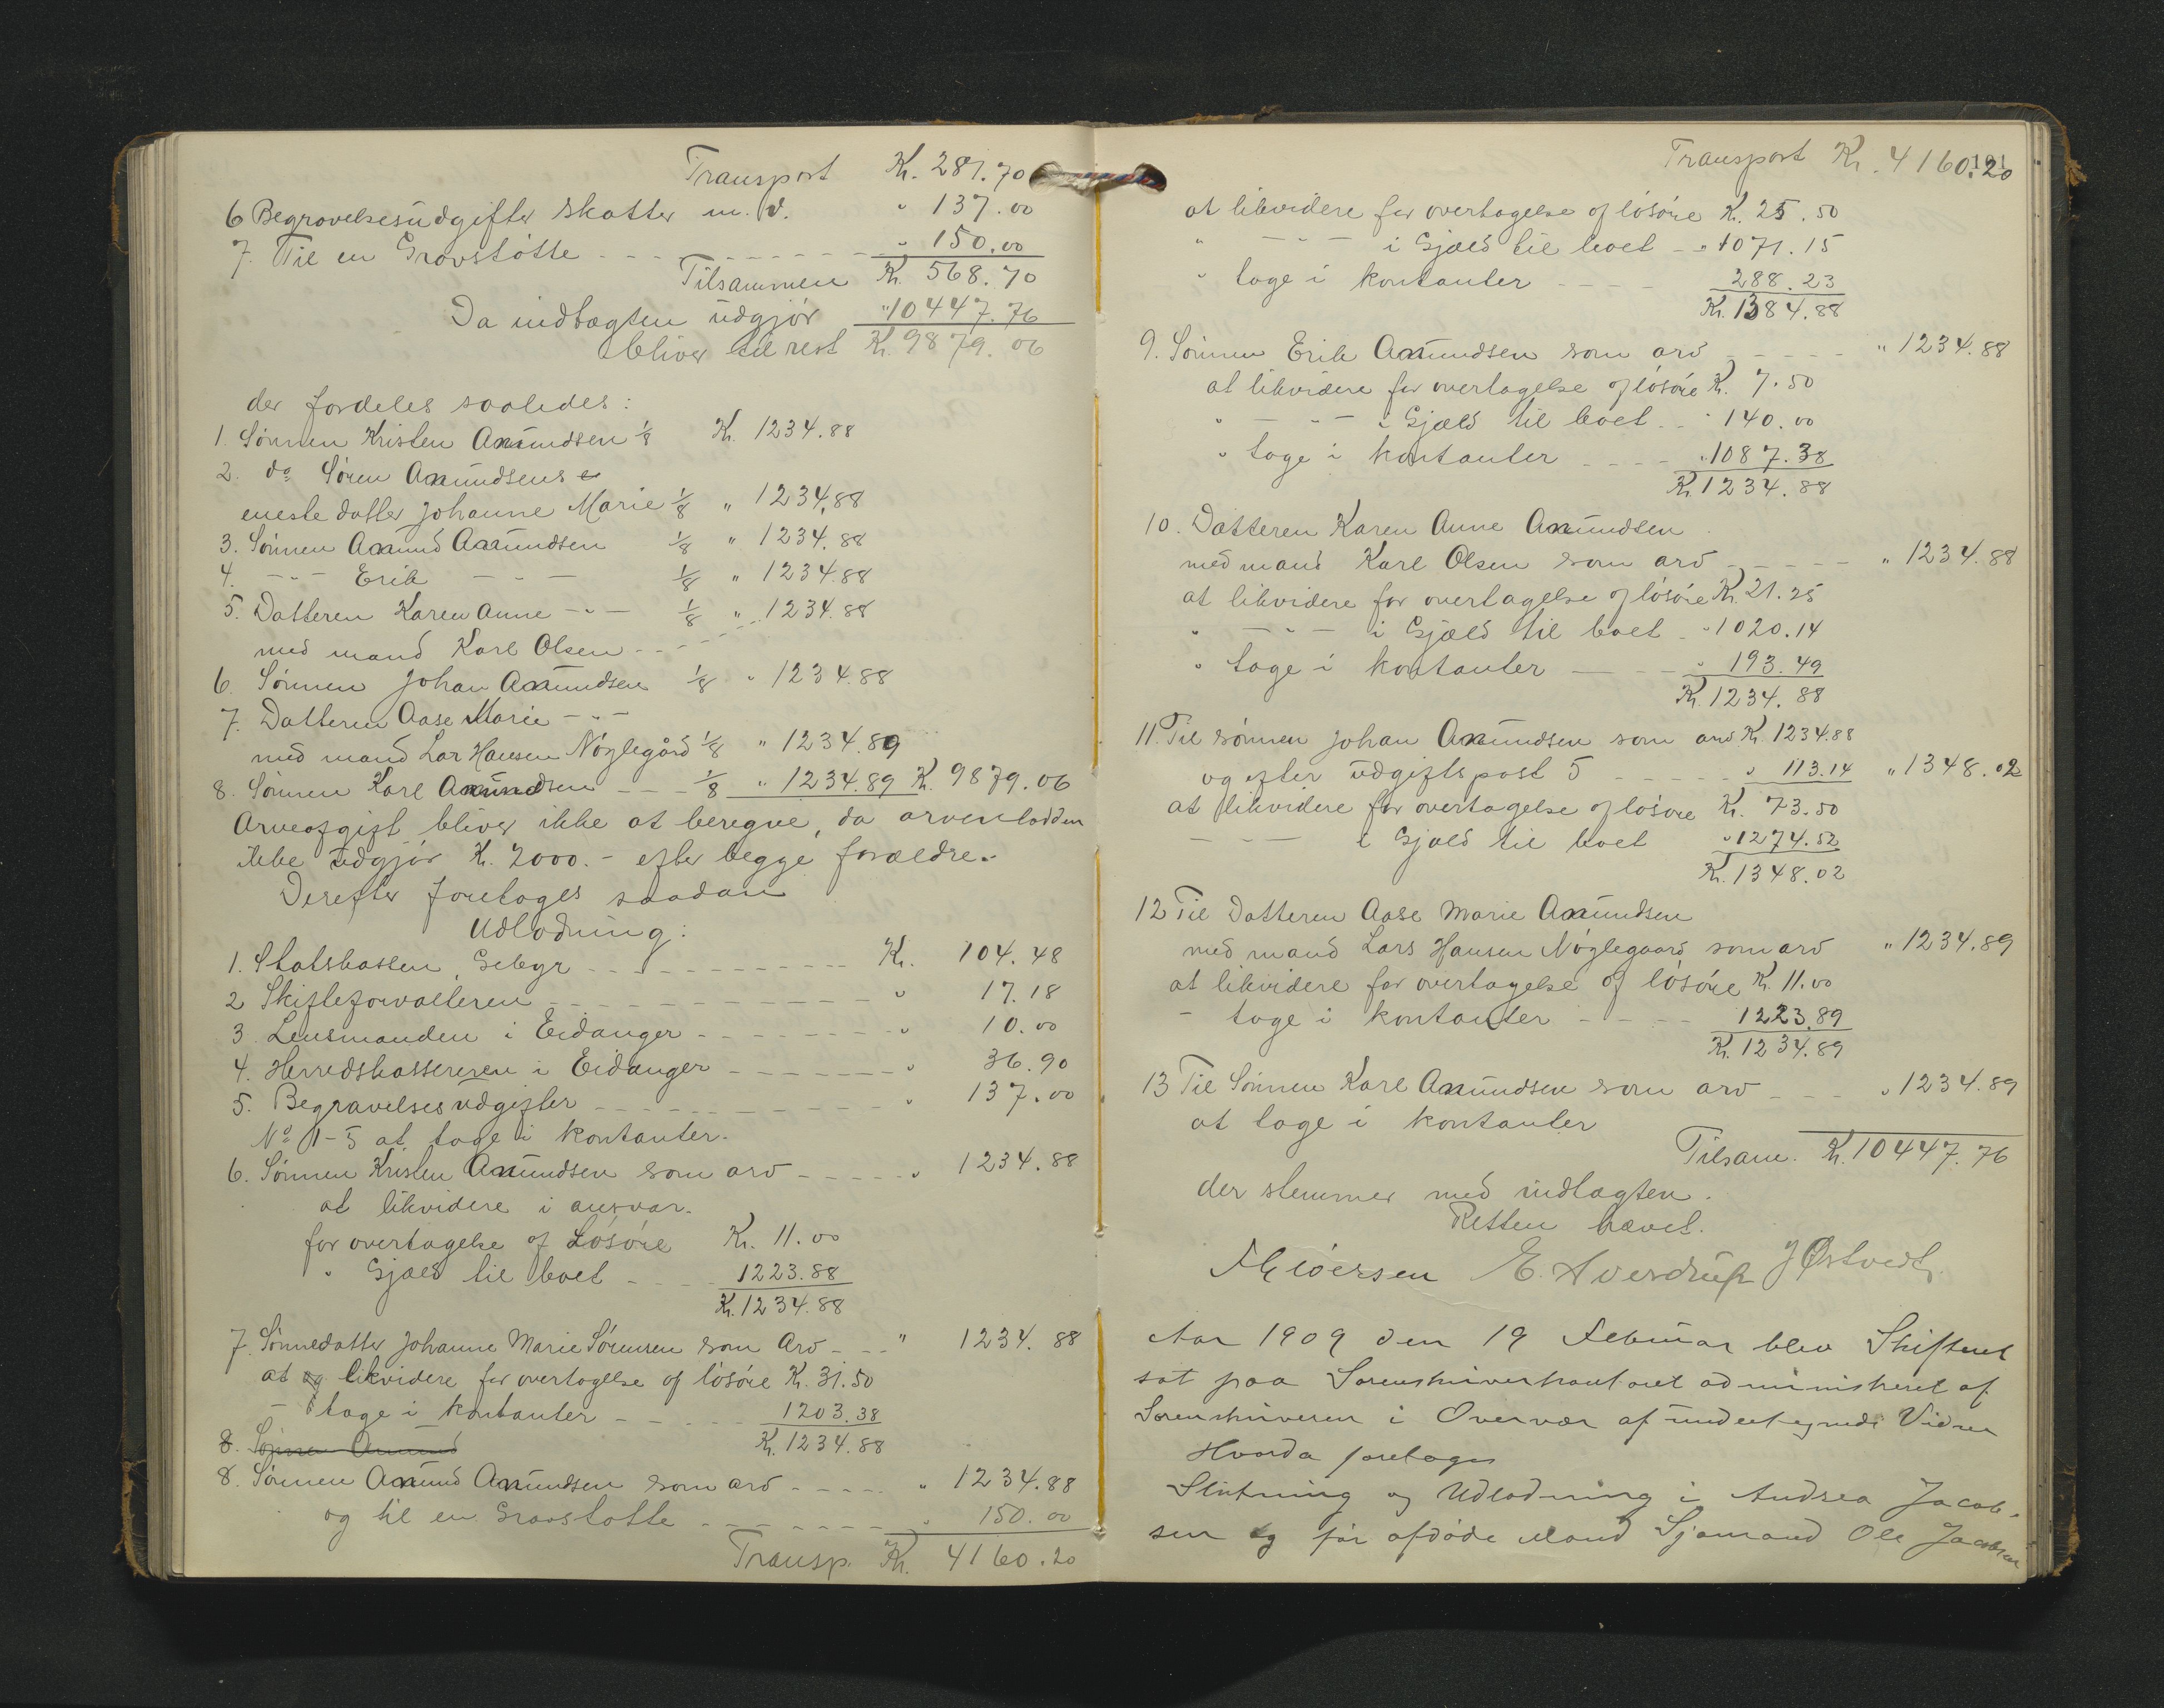 Transport Kr. 281.70
6 Begravelsesudgifter skatter m. v. " 137.00
7. Til en Gravstötte - - - " 150.00
Tilsammen Kr. 568.70
Da indtægten udgjör " 10447.76
bliver til rest Kr. 9879.06
der fordeles saaledes:
1. Sönnen Kristen Amundsen 1/8 Kr. 1234.88
2. do Sören Amundsens
eneste datter Johanne Marie 1/8 " 1234.88
3. Sönnen Amund Amundsen 1/8 " 1234.88
4. - " - Erik - " - 1/8 " 1234.88
5. Datteren Karen Anne - " - 1/8 " 1234.88
med mand Karl Olsen - - -
6. Sönnen Johan Amundsen 1/8 " 1234.88
7. Datteren Aase Marie - " -
med mand Lar Hansen Nöglegård 1/8 " 1234.89
8. Sönnen Karl Amundsen - - 1/8 " 1234.89 Kr. 9879.06
Arveafgift bliver ikke at beregne, da arvenlodden
ikke udgjör Kr. 2000.- efter begge forældre.
Derefter foretages saadan
Udlodning:
1. Statskassen, Gebyr - - - Kr. 104.48
2 Skifteforvalteren - - - " 17.18
3. Lensmanden i Eidanger - - - " 10.00
4. Herredskassereren i Eidanger - - - " 36.90
5. Begravelsesudgifter - - - " 137.00
No 1-5 at tage i kontanter.
6. Sönnen Kristen Amundsen som arv - - - " 1234.88
at likvidere i ansvar.
for overtagelse af Lösöre Kr. 11.00
" Gjæld til boet - - 1223.88
Kr. 1234.88
7. Sönnedatter Johanne Marie Sörensen som Arv - - " 1234.88
at og likvidere for overtagelse af lösöre Kr. 31.50
- tage i kontanter - - - 1203.38
8. Sönnen Amund Kr. 1234.88
8. Sönnen Amund Amundsen som arv - - - " 1234.88
og til en Gravstötte - - - " 150.00
Transp. Kr. 4160.20
Transport Kr. 4160.20
191
at likvidere for overtagelse af lösöre Kr. 25.50
" - " - i Gjæld til boet - " 1071.15
" tage i kontanter - - - 288.23
Kr. 1384.88
9. Sönnen Erik Amundsen som arv - - - " 1234.88
at likvidere for overtagelse af lösöre Kr. 7.50
" - " - i Gjæld til boet - - " 140.00
" tage i kontanter - - - " 1087.38
Kr. 1234.88
10. Datteren Karen Anne Amundsen
med mand Karl Olsen som arv - - - " 1234.88
at likvidere for overtagelse af lösöre Kr. 21.25
" - " - i Gjæld til boet - " 1020.14
" tage i kontanter - - " 193.49
Kr. 1234.88
11. Til sönnen Johan Amundsen som arv Kr. 1234.88
og efter udgiftspost 5 - - - " 113.14 " 1348.02
at likvidere for overtagelse af lösöre Kr. 73.50
- - - i Gjæld til boet " 1274.52
Kr. 1348.02
12 Til Datteren Aase Marie Amundsen
med mand Lars Hansen Nöglegaard som arv " 1234.89
at likvidere for overtagelse af lösöre Kr. 11.00
- tage i kontanter - - - 1223.89
Kr. 1234.89
13 Til Sönnen Karl Amundsen som arv - - - " 1234.89
at tage i kontanter
Tilsam. Kr. 10447.76
der stemmer med indtægten.
Retten hævet.
E. Sverdrup J Østvedt
Aar 1909 den 19 Februar blev Skifteret
sat paa Sorenskriverkontoret administreret af
Sorenskriveren i Overvær af undertegnede Vidner
Hvorda foretoges
Slutning og Udlodning i Andrea Jacob-
sen og för afdöde Mand Sjömand Ole Jacobsen